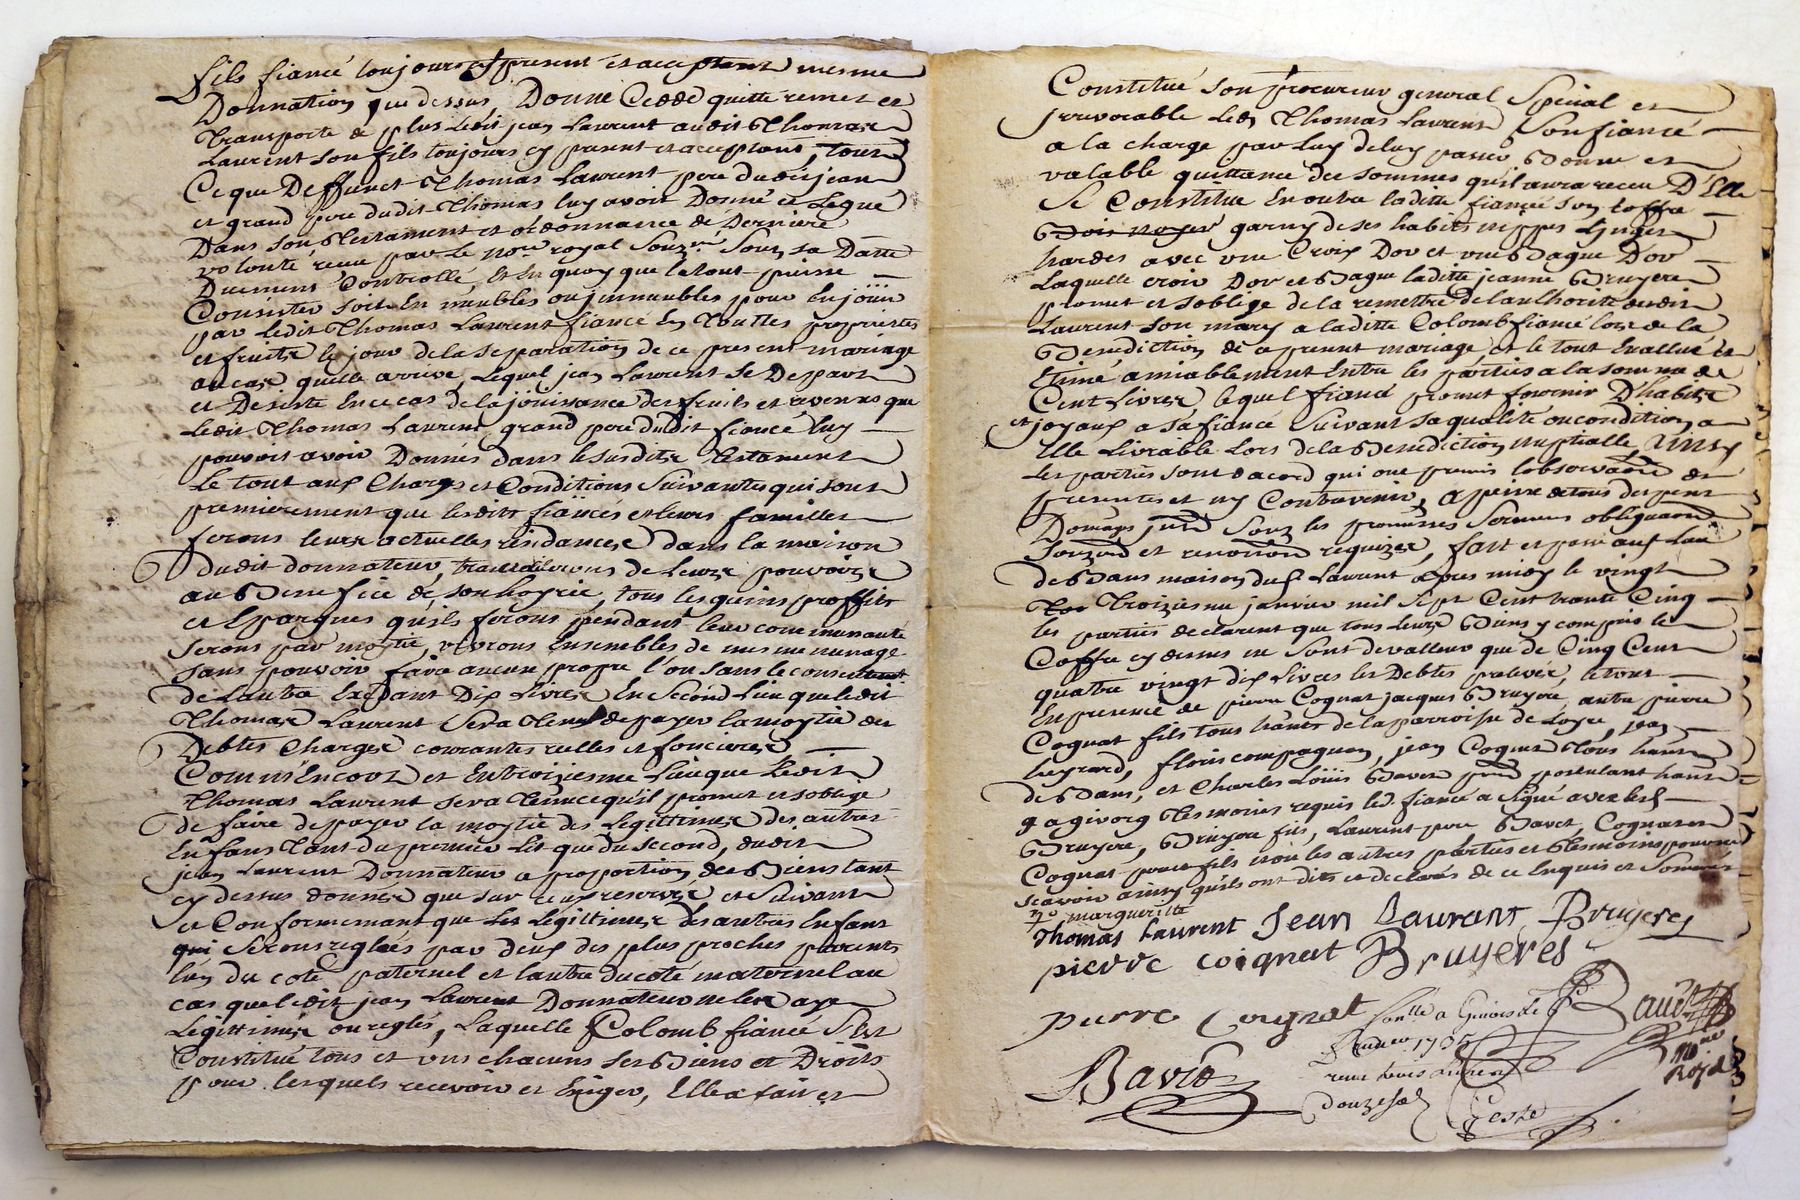 fils fiancé toujours cy present et acceptant mesme
Donnation que dessus, Donne Cedde quitte remet et
transporte de plus ledit jean Laurent audit Thomas
Laurent son fils toujours cy present et acceptant, tout
Ce que Deffunct Thomas Laurent pere dudit jean
et grand pere dudit Thomas luy avoit Donné et Legué
Dans son Testament et ordonnance de Derniere
volonté receu par le no.re royal souz.né sous sa Datte
Duement Controllé, et en quoy que le tout puisse
Consister soit En meubles ou immeubles pour En joüir
par ledit Thomas Laurent fiancé En touttes proprietés
et fruits le jour de la separation de ce present mariage
au cas quelle arrive, Lequel jean Laurent se Depart
et Desiste En ce cas de la joüissance des fruits et revenus que
Ledit Thomas Laurent grand pere dudit fiancé luy
pouvoit avoir Donnés dans le susdit Testament
Le tout aux Charges et Conditions Suivantes qui sont
premierement que lesdits fiancés et leurs familles
feront leurs actuelles residances dans la maison
dudit donnateur, travailleront de Leurs pouvoirs
au Benefice de son hoyrie, tous lesquels proffits
et Epargnes qu'ils feront pendant leur communauté
seront par moytié, vivront Ensembles de mesme menage
sans pouvoir faire aucun propre l'un sans le consentement
de Lautre Excedant Dix Livres En Second Lieu que ledit
Thomas Laurent sera tenu de payer la moytié des
Debtes Charges courantes reelles et foncieres
Comm'Encour et En troiziesme Lieu que Ledit
Thomas Laurent sera tenu ce qu'il promet et soblige
de faire de payer la moytié des Legittimes des autres
Enfans tant du premier Lit que du second, dudit
jean Laurent Donnateur a proportion des Biens tant
cy dessus donnés que sur ceux reservés et Suivant
et Conformement que Les Legittimes des autres Enfans
qui Seront reglées par deux des plus proches parents
lun du coté paternel et lautre du coté maternel au
cas que ledit jean Laurent Donnateur ne les aye
Legittimés ou reglés, Laquelle Colomb fiancée S'Est
Constitué tous et uns chacuns ses Biens et Droits
pour lesquels recevoir et Exiger, Elle a fait et
Constitué son procureur general Special et
Irrevocable Led. Thomas Laurent Son fiancé
a la charge par Luy de luy passer Bonne et
valable quittance des sommes qu'il aura receu D'Elle
Se Constitue En outre laditte fiancée son coffre
Bois noyer garny de ses habits nippes Linges
hardes avec une Croix Dor et une Bague Dor
Laquelle croix Dor et Bague laditte jeanne Bruyere
promet et soblige de la remettre de lauthorité dudit
Laurent son mary a laditte Colomb fiancée lors de la
Benediction de ce present mariage, et le tout Evallué et
Estimé amiablement Entre les parties a la somme de
Cent Livres, lequel fiancé promet fournir D'habits
et joyaux a sa fiancée Suivant sa qualité ou condition a
Elle Livrable Lors de la Benediction nuptialle, Ainsy
Les parties sont dacord qui ont promis lobservance des
presentes et ny Contrevenir, a peine de tous despens
Domages Sous les promesses Sermens obliga͠on
Souz͠on et renon͠on requizes, fait et passé au lieu
de Bans maison dud. Laurent apres midy le vingt
troiziesme janvier mil Sept Cent trante Cinq
les parties declarent que tous leurs Biens y compris le
Coffre cy dessus ne sont de valleur que de Cinq Cent
quatre vingt dix Livres les Debtes prelevés, le tout
En presence de pierre Cognat jacques Bruyere, autre pierre
Cognat fils tous hants de la parroisse de Loyre, jean
fleuris compagnon, jean Cognat tous hants
de Bans, et Charles Loüis Bavet postulant hant
a givors tesmoins requis led. fiancé a signé avec lesd.
Bruyere, Bruyere fils, Laurent pere Bavet, Cognat et
Cognat pere et fils non les autres parties et tesmoins pour ne
scavoir ainsy qu'ils ont dits et declarés de ce Enquis et Sommés
margueritte
Thomas Laurent Jean Laurant, Bruyeres
pierre coignat Bruyeres
pierre Coignat
a Givors le
Janvier 1735
Bavet
receu
douze sols
Royal